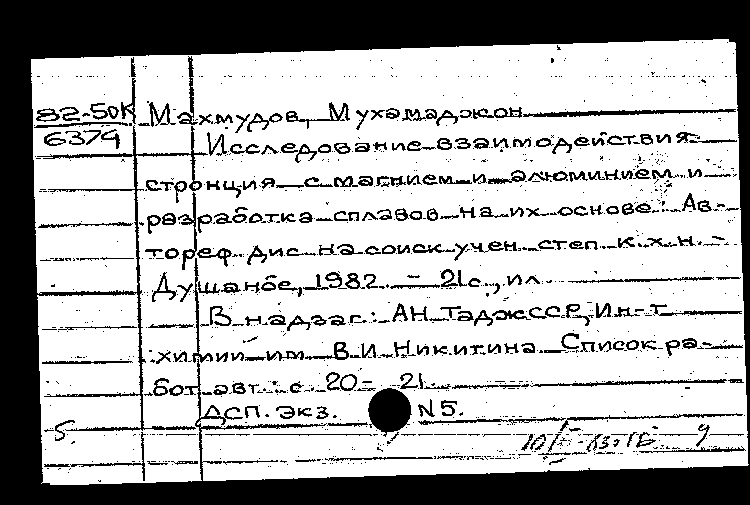 82-50К Махмудов, Мухамаджон
6379
Исследование взаимодействия
стронция с магнием и алюминием и
разработка сплавов на их основе: Ав-
тореф. дис. на соиск. учен. степ. к.х.н. -
Душанбе, 1982. - 21 с., ил.
В надзаг.: АН ТаджССР, Ин-т
химии им. В.И. Никитина. Список ра-
бот авт.: с. 20 - 21.
ДСП. Экз. N5.
5.